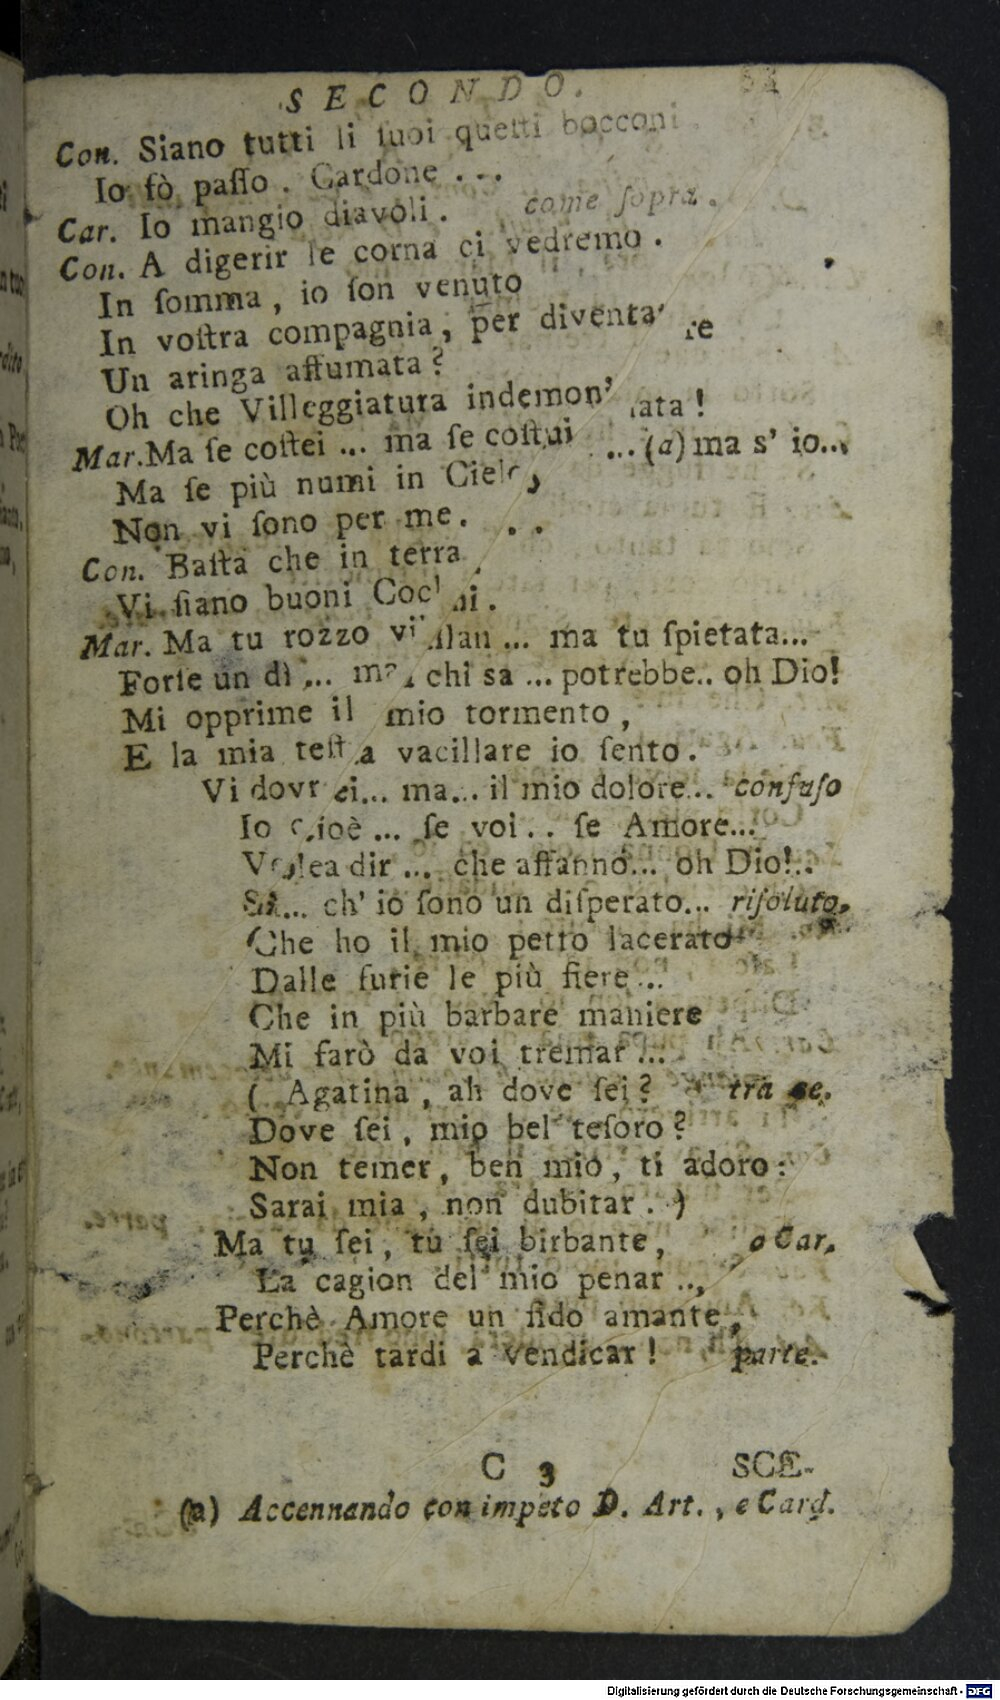 SECONDO.
Con. Siano tutti li ſuoi queſti bocconi
Io fò paſſo. Cardone ...
Car. Io mangio diavoli. come ſopra.
Con. A digerir le corna ci vedremo.
In ſomma, io ſon venuto
In voſtra compagnia, per diventare
Un aringa affumata?
Oh che Villeggiatura indemon' iata!
Mar. Ma ſe coſtei ... ma ſe coſtui ... (a) ma s' io...
Ma ſe più numi in Cielo,
Non vi ſono per me. . .
Con. Baſta che in terra
Vi ſiano buoni Coc' ni.
Mar. Ma tu rozzo vi llan ... ma tu ſpietata...
Forſe un dì ... ma, chi sa ... potrebbe.. oh Dio!
Mi opprime il mio tormento,
E la mia teſta vacillare io ſento.
Vi dovrei... ma... il mio dolore... confuſo
Io cioè ... ſe voi.. ſe Amore...
Volea dir ... che affanno... oh Dio!..
Sì... ch' io ſono un diſperato... riſoluto.
Che ho il mio petto lacerato
Dalle furie le più fiere...
Che in più barbare maniere
Mi farò da voi tremar ...
( Agatina, ah dove ſei? trà se.
Dove ſei, mio bel teſoro?
Non temer, ben mio, ti adoro:
Sarai mia, non dubitar. )
Ma tu ſei, tu ſei birbante, a Car.
La cagion del mio penar ..,
Perchè Amore un fido amante,
Perchè tardi a vendicar! parte.
C 3 SCE-
(a) Accennando con impeto D. Art., e Card.
Digitalisierung gefördert durch die Deutsche Forschungsgemeinschaft - DFG